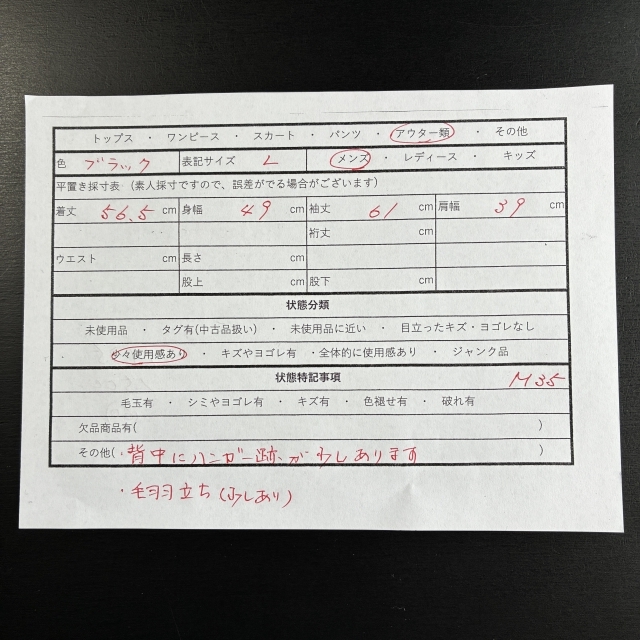 トップス ・ ワンピース ・ スカート ・ パンツ ・ アウター類 ・ その他
色 ブラック 表記サイズ L メンズ ・ レディース ・ キッズ
平置き採寸表 (素人採寸ですので、誤差がでる場合がございます)
着丈 56.5 cm 身幅 49 cm 袖丈 61 cm 肩幅 39 cm
裄丈 cm
ウエスト cm 長さ cm
股上 cm 股下 cm
状態分類
未使用品 ・ タグ有(中古品扱い) ・ 未使用品に近い ・ 目立ったキズ・ヨゴレなし
少々使用感あり ・ キズやヨゴレ有 ・全体的に使用感あり ・ ジャンク品
状態特記事項 M35
毛玉有 ・ シミやヨゴレ有 ・ キズ有 ・ 色褪せ有 ・ 破れ有
欠品商品有( )
その他(・背中にハンガー跡が少しあります )
・毛羽立ち(少しあり)